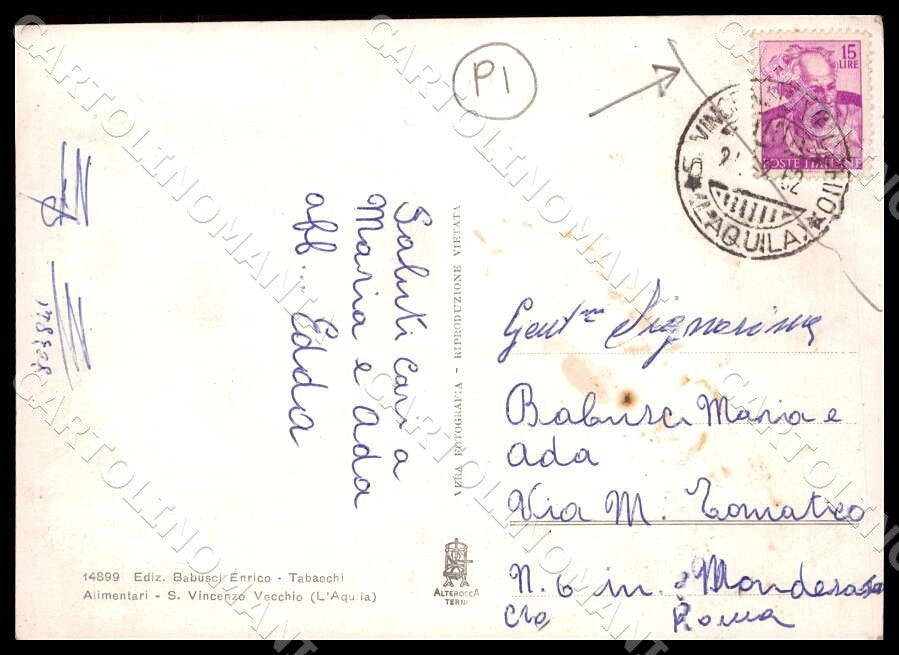 P1
15
LIRE
POSTE ITALIANE
S. VINCENZO VECCHIO
(L'AQUILA)
Saluti cari a
Maria e Ada
aff... Edda
178508
VERA FOTOGRAFIA - RIPRODUZIONE VIETATA
Gent.me Signorine
Babusci Maria e
Ada
Via M.
N. 6 in.
Roma
14899 Ediz. Babusci Enrico - Tabacchi
Alimentari - S. Vincenzo Vecchio (L'Aquila)
ALTEROCCA
TERNI
CARTOLINOMANIA